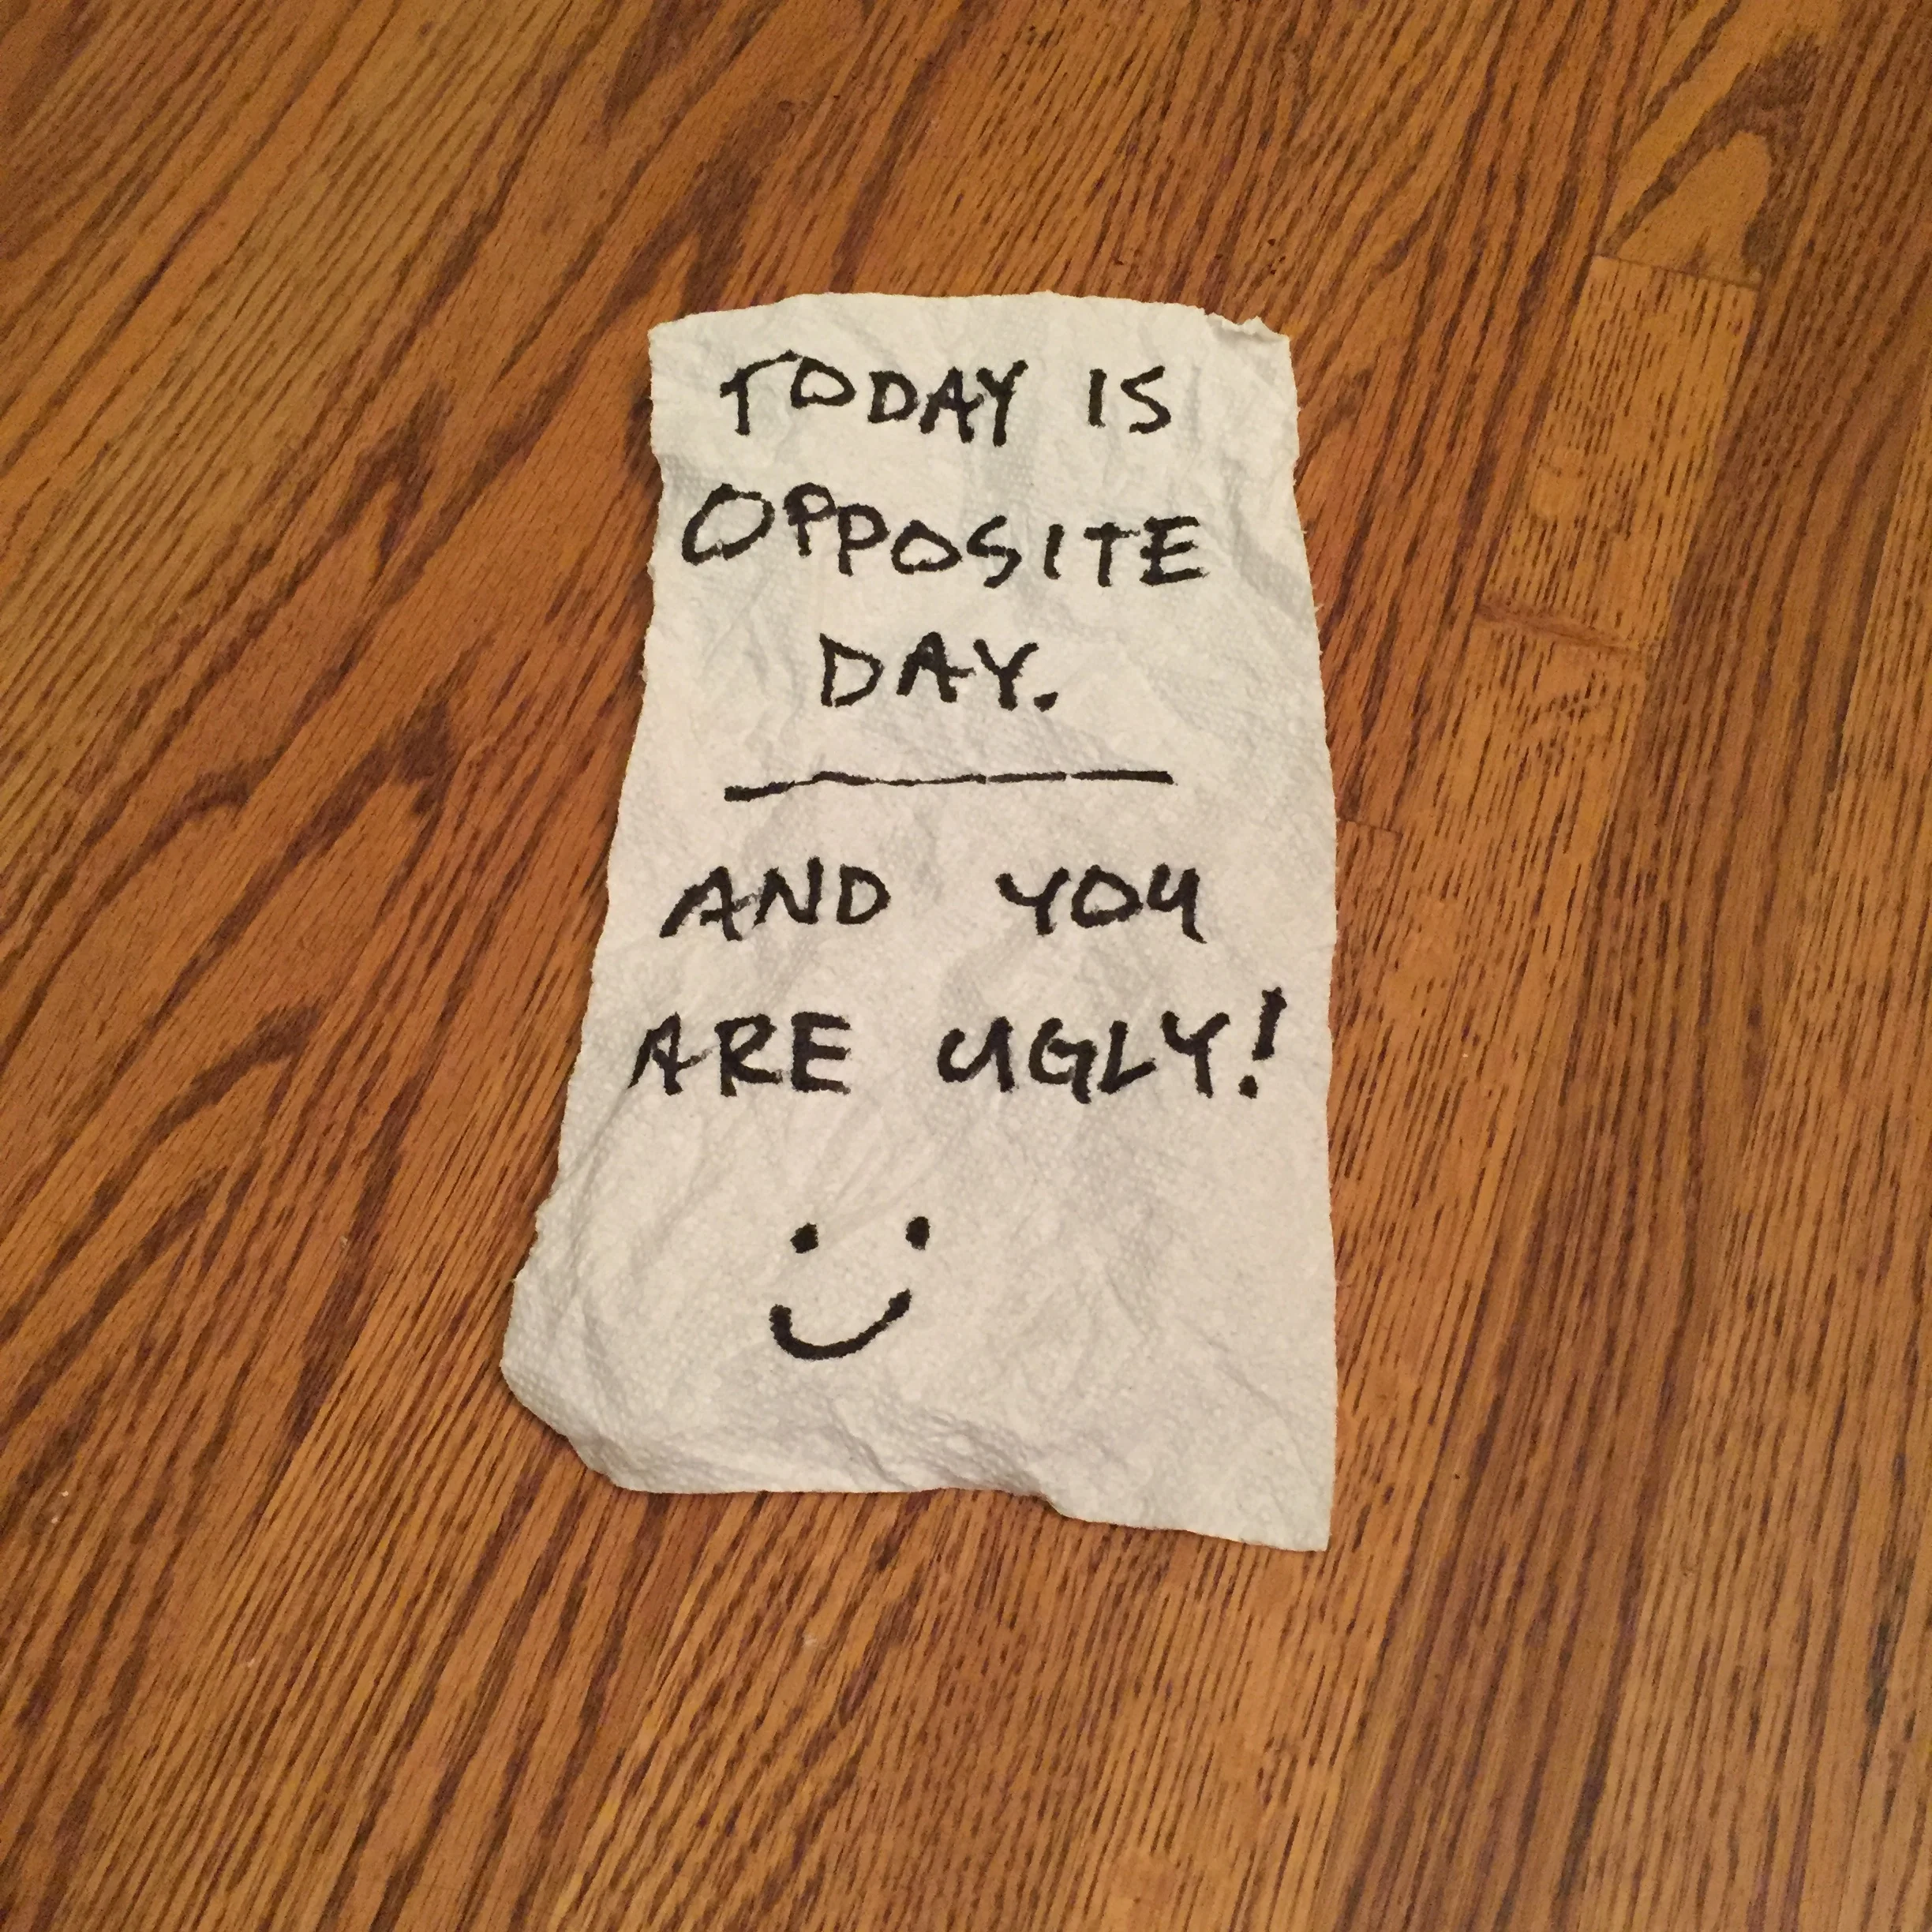 TODAY IS
OPPOSITE
DAY.
AND YOU
ARE UGLY!